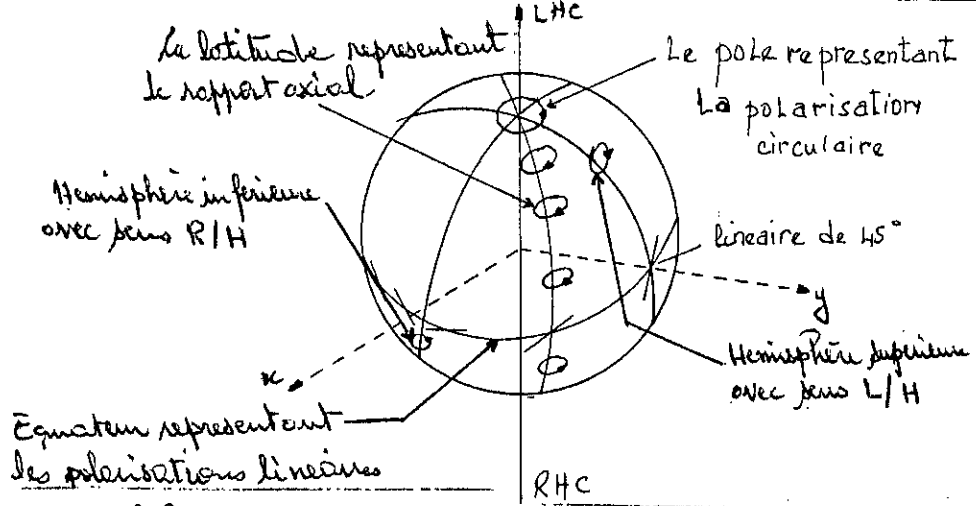 LHC
La latitude representant
le rapport axial
Le pole representant
La polarisation
circulaire
Hemisphère inferieure
avec sens R/H
lineaire de 45°
y
x
Hemisphère superieure
avec sens L/H
Equateur representant
les polarisations lineaires
RHC